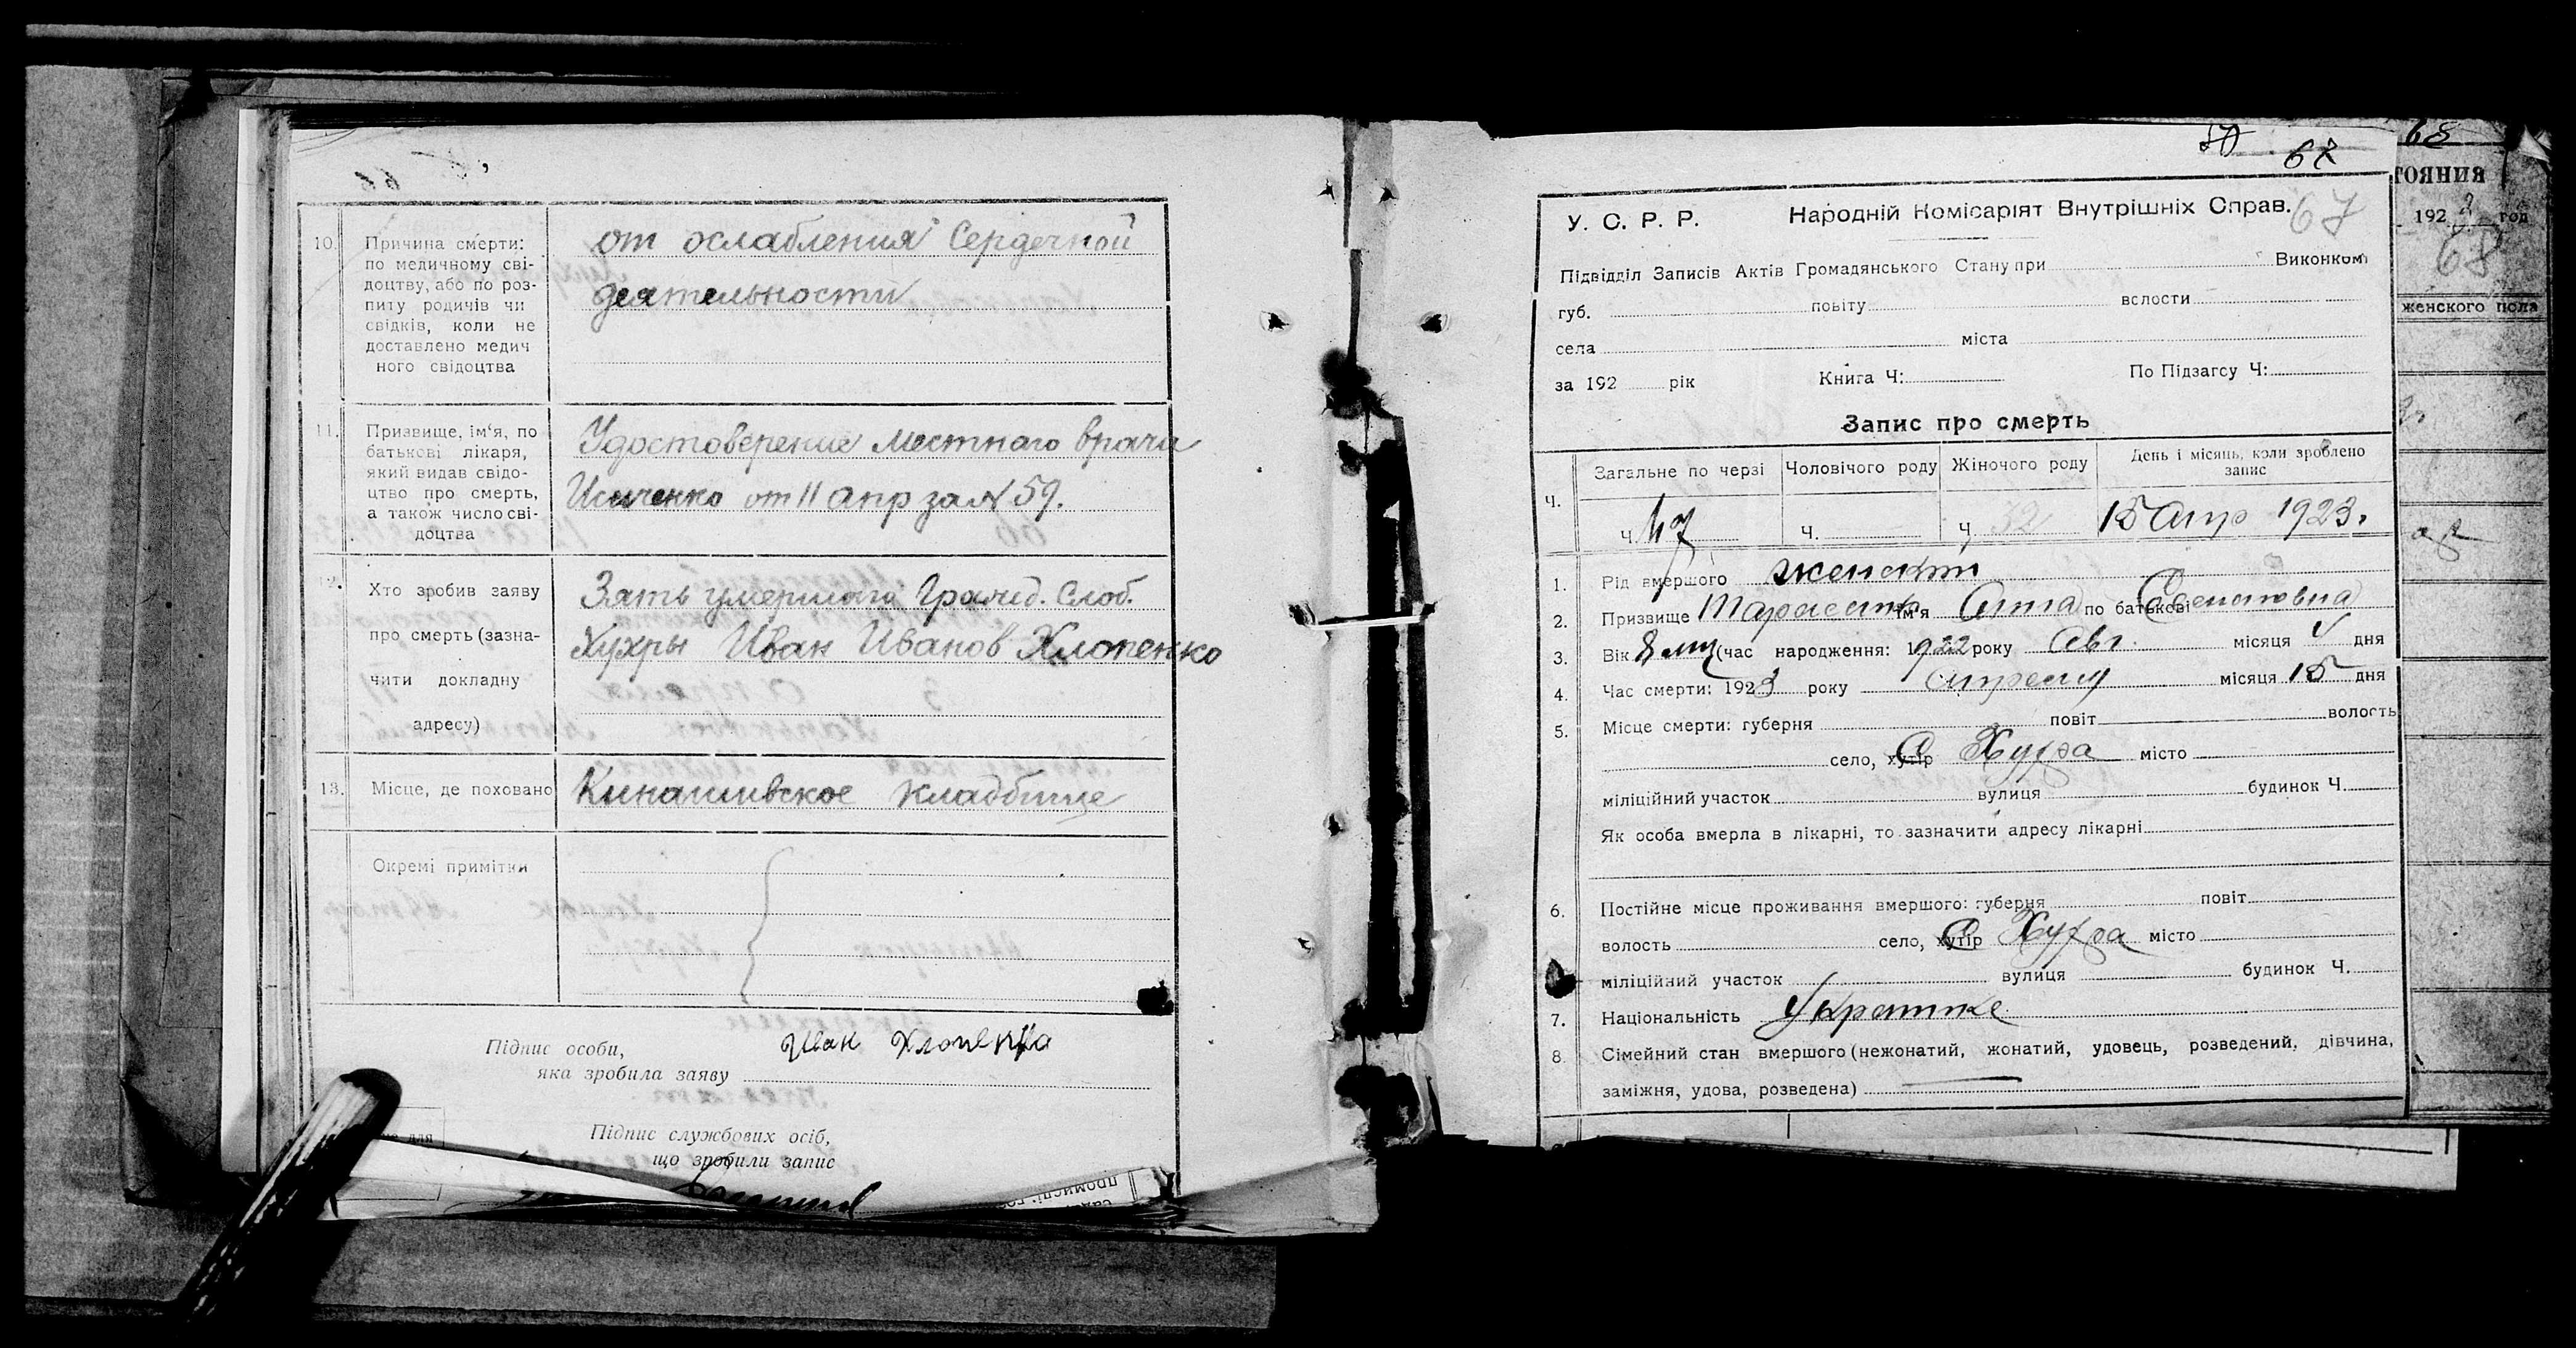 10. Причина смерти:
по медичному сві-
доцтву, або по роз-
питу родичів чи
свідків, коли не
доставлено медич
ного свідоцтва
от ослабления Сердечной
деятельности
11. Призвище, ім'я, по
батькові лікаря,
який видав свідо-
цтво про смерть,
а також число сві-
доцтва
Удостоверение местнаго врача
от 11 апр за № 59.
12. Хто зробив заяву
про смерть (зазна-
чити докладну
адресу)
Зять умершаго Гражд. Слоб.
Хухры Иван Иванов Хлопенко
13. Місце, де поховано
Кинашивское кладбище
Окремі примітки
Підпис особи,
яка зробила заяву
Иван Хлопенко
Підпис службових осіб,
що зробили запис
67
У. С. Р. Р. Народній Комісаріят Внутрішніх Справ. 67
Підвідділ Записів Актів Громадянського Стану при Виконком
губ. повіту волости
села міста
за 192 рік Книга Ч: По Підзагсу Ч:
Запис про смерть
Ч. Загальне по черзі Чоловічого роду Жіночого роду День і місяць, коли зроблено
запис
Ч. 47 Ч. Ч. 32 15 Апр 1923.
1. Рід вмершого женский
2. Призвище ім'я Анна по батькові
3. Вік 8 мц (час народження: 1922 року Авг. місяця дня
4. Час смерти: 1923 року Апреля місяця 15 дня
5. Місце смерти: губерня повіт волость
село, хутір Хухра місто
міліційний участок вулиця будинок Ч.
Як особа вмерла в лікарні, то зазначити адресу лікарні
6. Постійне місце проживання вмершого: губерня повіт
волость село, хутір Хухра місто
міліційний участок вулиця будинок Ч.
7. Національність
8. Сімейний стан вмершого (нежонатий, жонатий, удовець, розведений, дівчина,
заміжня, удова, розведена)
68
тояния
192 год
68
женского пола